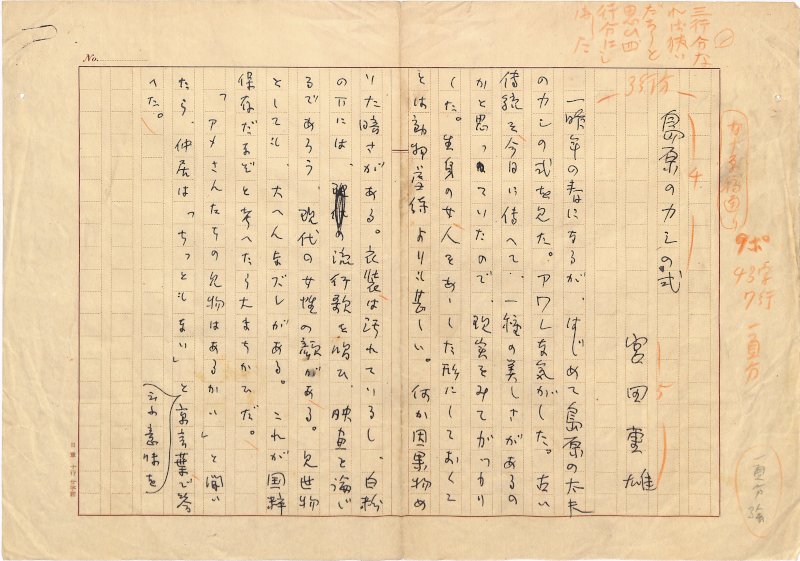 島原のカシの式
宮田重雄
一昨年の春になるが、はじめて島原の太夫
のカシの式を見た。アワレな気がした。古い
伝統を今日に伝へて、一種の美しさがあるの
かと思っていたので、現実をみてがっかり
した。生身の女人をあゝした形にしておくこ
とは動物虐待よりも甚しい。何か因果物め
いた暗さがある。衣装は汚れているし、白粉
の下には、の流行歌を唄ひ、映画を論じ
るであろう、現代の女性の顔がある。見世物
としても、大へんなズレがある。これが国粋
保存だなぞと考へたら大まちがひだ。
「アメさんたちの見物はあるかい」と聞い
たら、仲居は「ちっともない」と云ふ意味を京言葉で答
へた。
三行分な
れば狭い
だらうと
思ひ四
行分にし
ました
3行分
4
5
9ポ
43字
7行
一頁分
No.